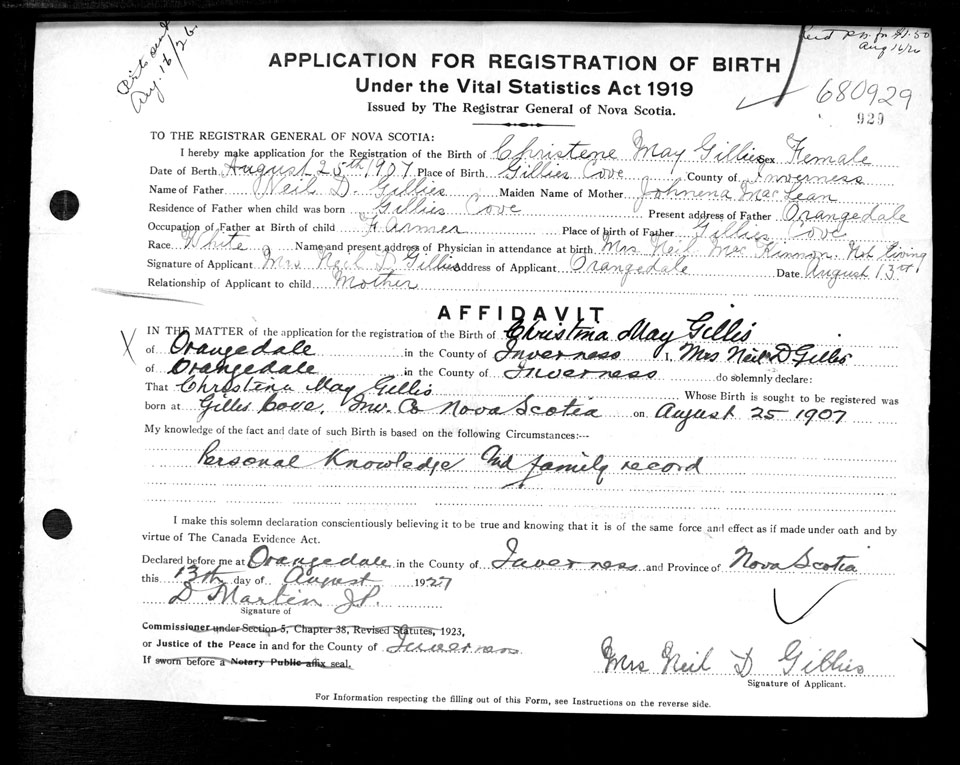 Aug. 16/26.
Aug 16/26
APPLICATION FOR REGISTRATION OF BIRTH
Under the Vital Statistics Act 1919
Issued by The Registrar General of Nova Scotia.
680929
929
TO THE REGISTRAR GENERAL OF NOVA SCOTIA:
I hereby make application for the Registration of the Birth of Christene May Gillies Sex Female
Date of Birth August 25th 1907 Place of Birth Gillies Cove County of Inverness
Name of Father Neil D. Gillies Maiden Name of Mother Johnena MacLean
Residence of Father when child was born Gillies Cove Present address of Father Orangedale
Occupation of Father at Birth of child Farmer Place of birth of Father Gillies Cove
Race White Name and present address of Physician in attendance at birth Mrs Neil MacKinnon. Not living
Signature of Applicant Mrs Neil D Gillies Address of Applicant Orangedale Date August 13th
Relationship of Applicant to child Mother
AFFIDAVIT
IN THE MATTER of the application for the registration of the Birth of Christina May Gillis
of Orangedale in the County of Inverness I, Mrs Neil D Gillis
of Orangedale in the County of Inverness do solemnly declare:
That Christina May Gillis Whose Birth is sought to be registered was
born at Gillis Cove, Inv. Co Nova Scotia on August 25 1907
My knowledge of the fact and date of such Birth is based on the following Circumstances:--
Personal Knowledge And family record
I make this solemn declaration conscientiously believing it to be true and knowing that it is of the same force and effect as if made under oath and by
virtue of The Canada Evidence Act.
Declared before me at Orangedale in the County of Inverness and Province of Nova Scotia
this 13th day of August 1927
D Martin J.P.
Signature of
Commissioner under Section 5, Chapter 38, Revised Statutes, 1923,
or Justice of the Peace in and for the County of Inverness
If sworn before a Notary Public affix seal.
Mrs Neil D Gillies
Signature of Applicant.
For Information respecting the filling out of this Form, see Instructions on the reverse side.